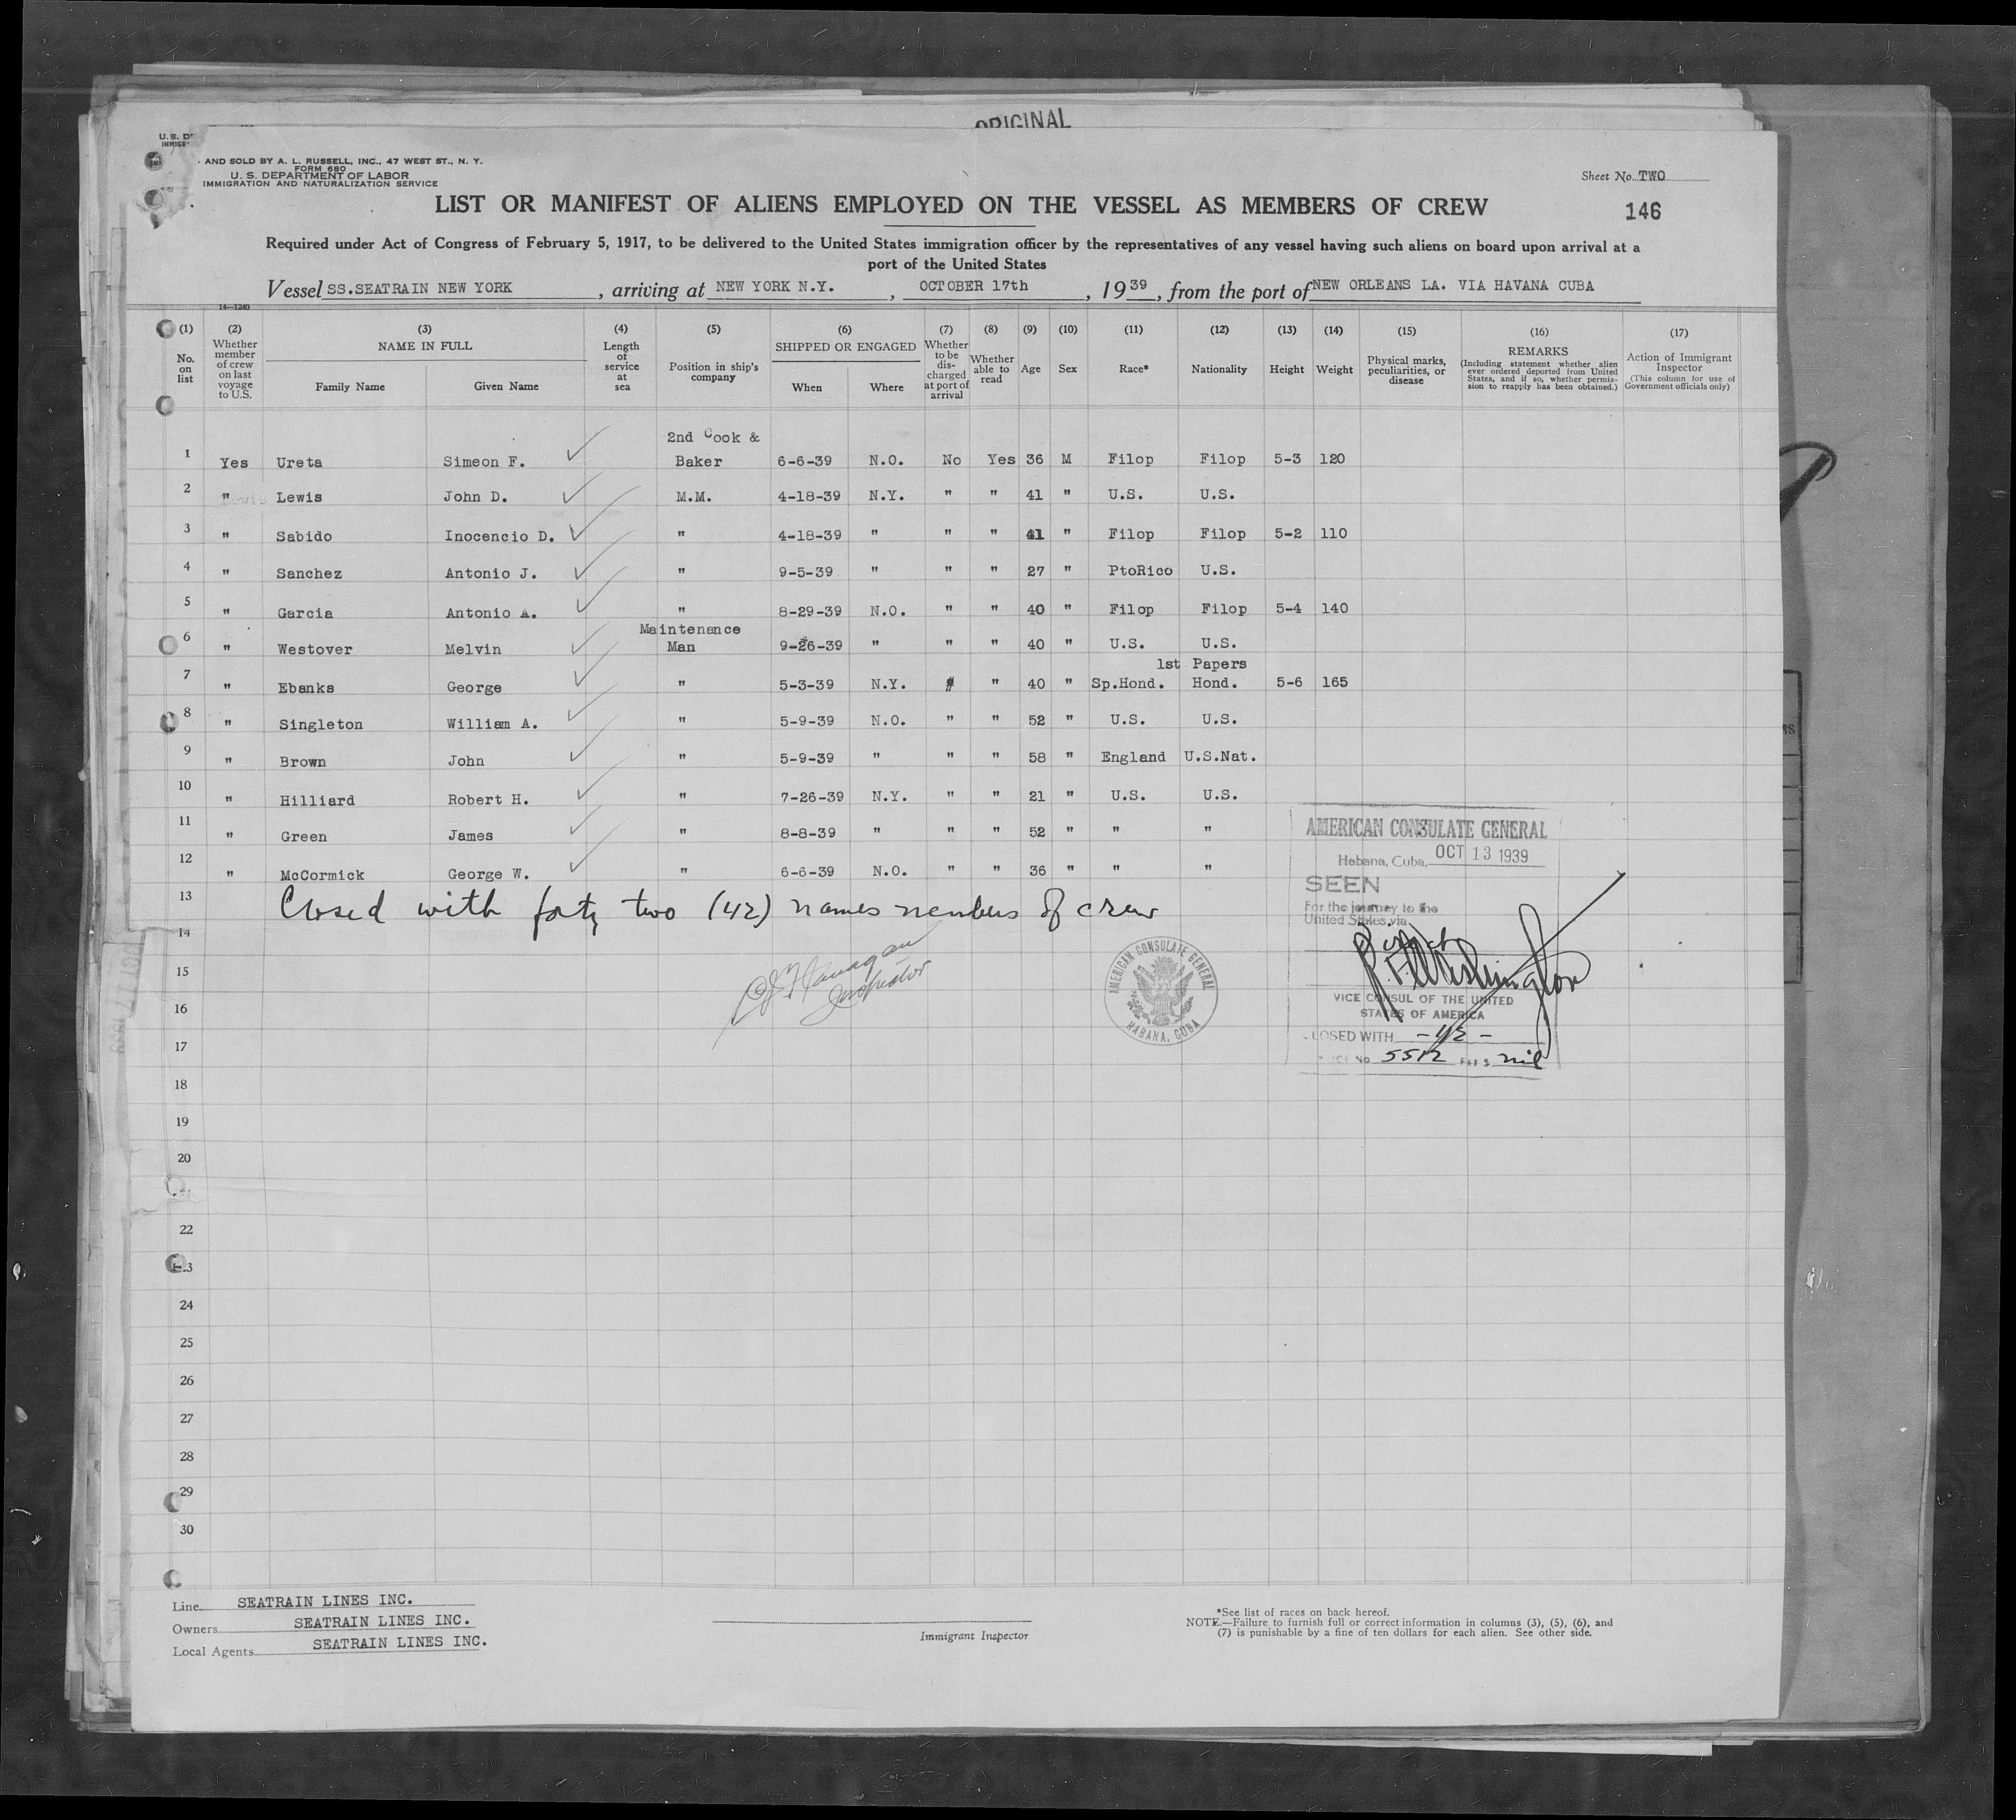 ORIGINAL
U. S. D
AND SOLD BY A. L. RUSSELL, INC., 47 WEST ST., N. Y.
FORM 680
U. S. DEPARTMENT OF LABOR
IMMIGRATION AND NATURALIZATION SERVICE
Sheet No. TWO
LIST OR MANIFEST OF ALIENS EMPLOYED ON THE VESSEL AS MEMBERS OF CREW
146
Required under Act of Congress of February 5, 1917, to be delivered to the United States immigration officer by the representatives of any vessel having such aliens on board upon arrival at a
port of the United States
Vessel SS.SEATRAIN NEW YORK, arriving at NEW YORK N.Y., OCTOBER 17th, 1939, from the port of NEW ORLEANS LA. VIA HAVANA CUBA
14—1240
(1) No. on list
(2) Whether member of crew on last voyage to U.S.
(3) NAME IN FULL
Family Name Given Name
(4) Length of service at sea
(5) Position in ship's company
(6) SHIPPED OR ENGAGED
When Where
(7) Whether to be discharged at port of arrival
(8) Whether able to read
(9) Age
(10) Sex
(11) Race*
(12) Nationality
(13) Height
(14) Weight
(15) Physical marks, peculiarities, or disease
(16) REMARKS
(Including statement whether alien ever ordered deported from United States, and if so, whether permission to reapply has been obtained.)
(17) Action of Immigrant Inspector
(This column for use of Government officials only)
1 Yes Ureta Simeon F. 2nd Cook & Baker 6-6-39 N.O. No Yes 36 M Filop Filop 5-3 120
2 " Lewis John D. M.M. 4-18-39 N.Y. " " 41 " U.S. U.S.
3 " Sabido Inocencio D. " 4-18-39 " " " 41 " Filop Filop 5-2 110
4 " Sanchez Antonio J. " 9-5-39 " " " 27 " PtoRico U.S.
5 " Garcia Antonio A. " 8-29-39 N.O. " " 40 " Filop Filop 5-4 140
6 " Westover Melvin Maintenance Man 9-26-39 " " " 40 " U.S. U.S.
7 " Ebanks George " 5-3-39 N.Y. " " 40 " Sp.Hond. 1st Papers Hond. 5-6 165
8 " Singleton William A. " 5-9-39 N.O. " " 52 " U.S. U.S.
9 " Brown John " 5-9-39 " " " 58 " England U.S.Nat.
10 " Hilliard Robert H. " 7-26-39 N.Y. " " 21 " U.S. U.S.
11 " Green James " 8-8-39 " " " 52 " " "
12 " McCormick George W. " 6-6-39 N.O. " " 36 " " "
13 Closed with forty two (42) names members of crew
14
15
16
17
18
19
20
22
23
24
25
26
27
28
29
30
Inspector
AMERICAN CONSULATE GENERAL
HABANA, CUBA
AMERICAN CONSULATE GENERAL
Habana, Cuba. OCT 13 1939
SEEN
For the journey to the
United States via
VICE CONSUL OF THE UNITED
STATES OF AMERICA
CLOSED WITH - 42 -
No 5512 nil
Line SEATRAIN LINES INC.
Owners SEATRAIN LINES INC.
Local Agents SEATRAIN LINES INC.
Immigrant Inspector
*See list of races on back hereof.
NOTE.—Failure to furnish full or correct information in columns (3), (5), (6), and
(7) is punishable by a fine of ten dollars for each alien. See other side.